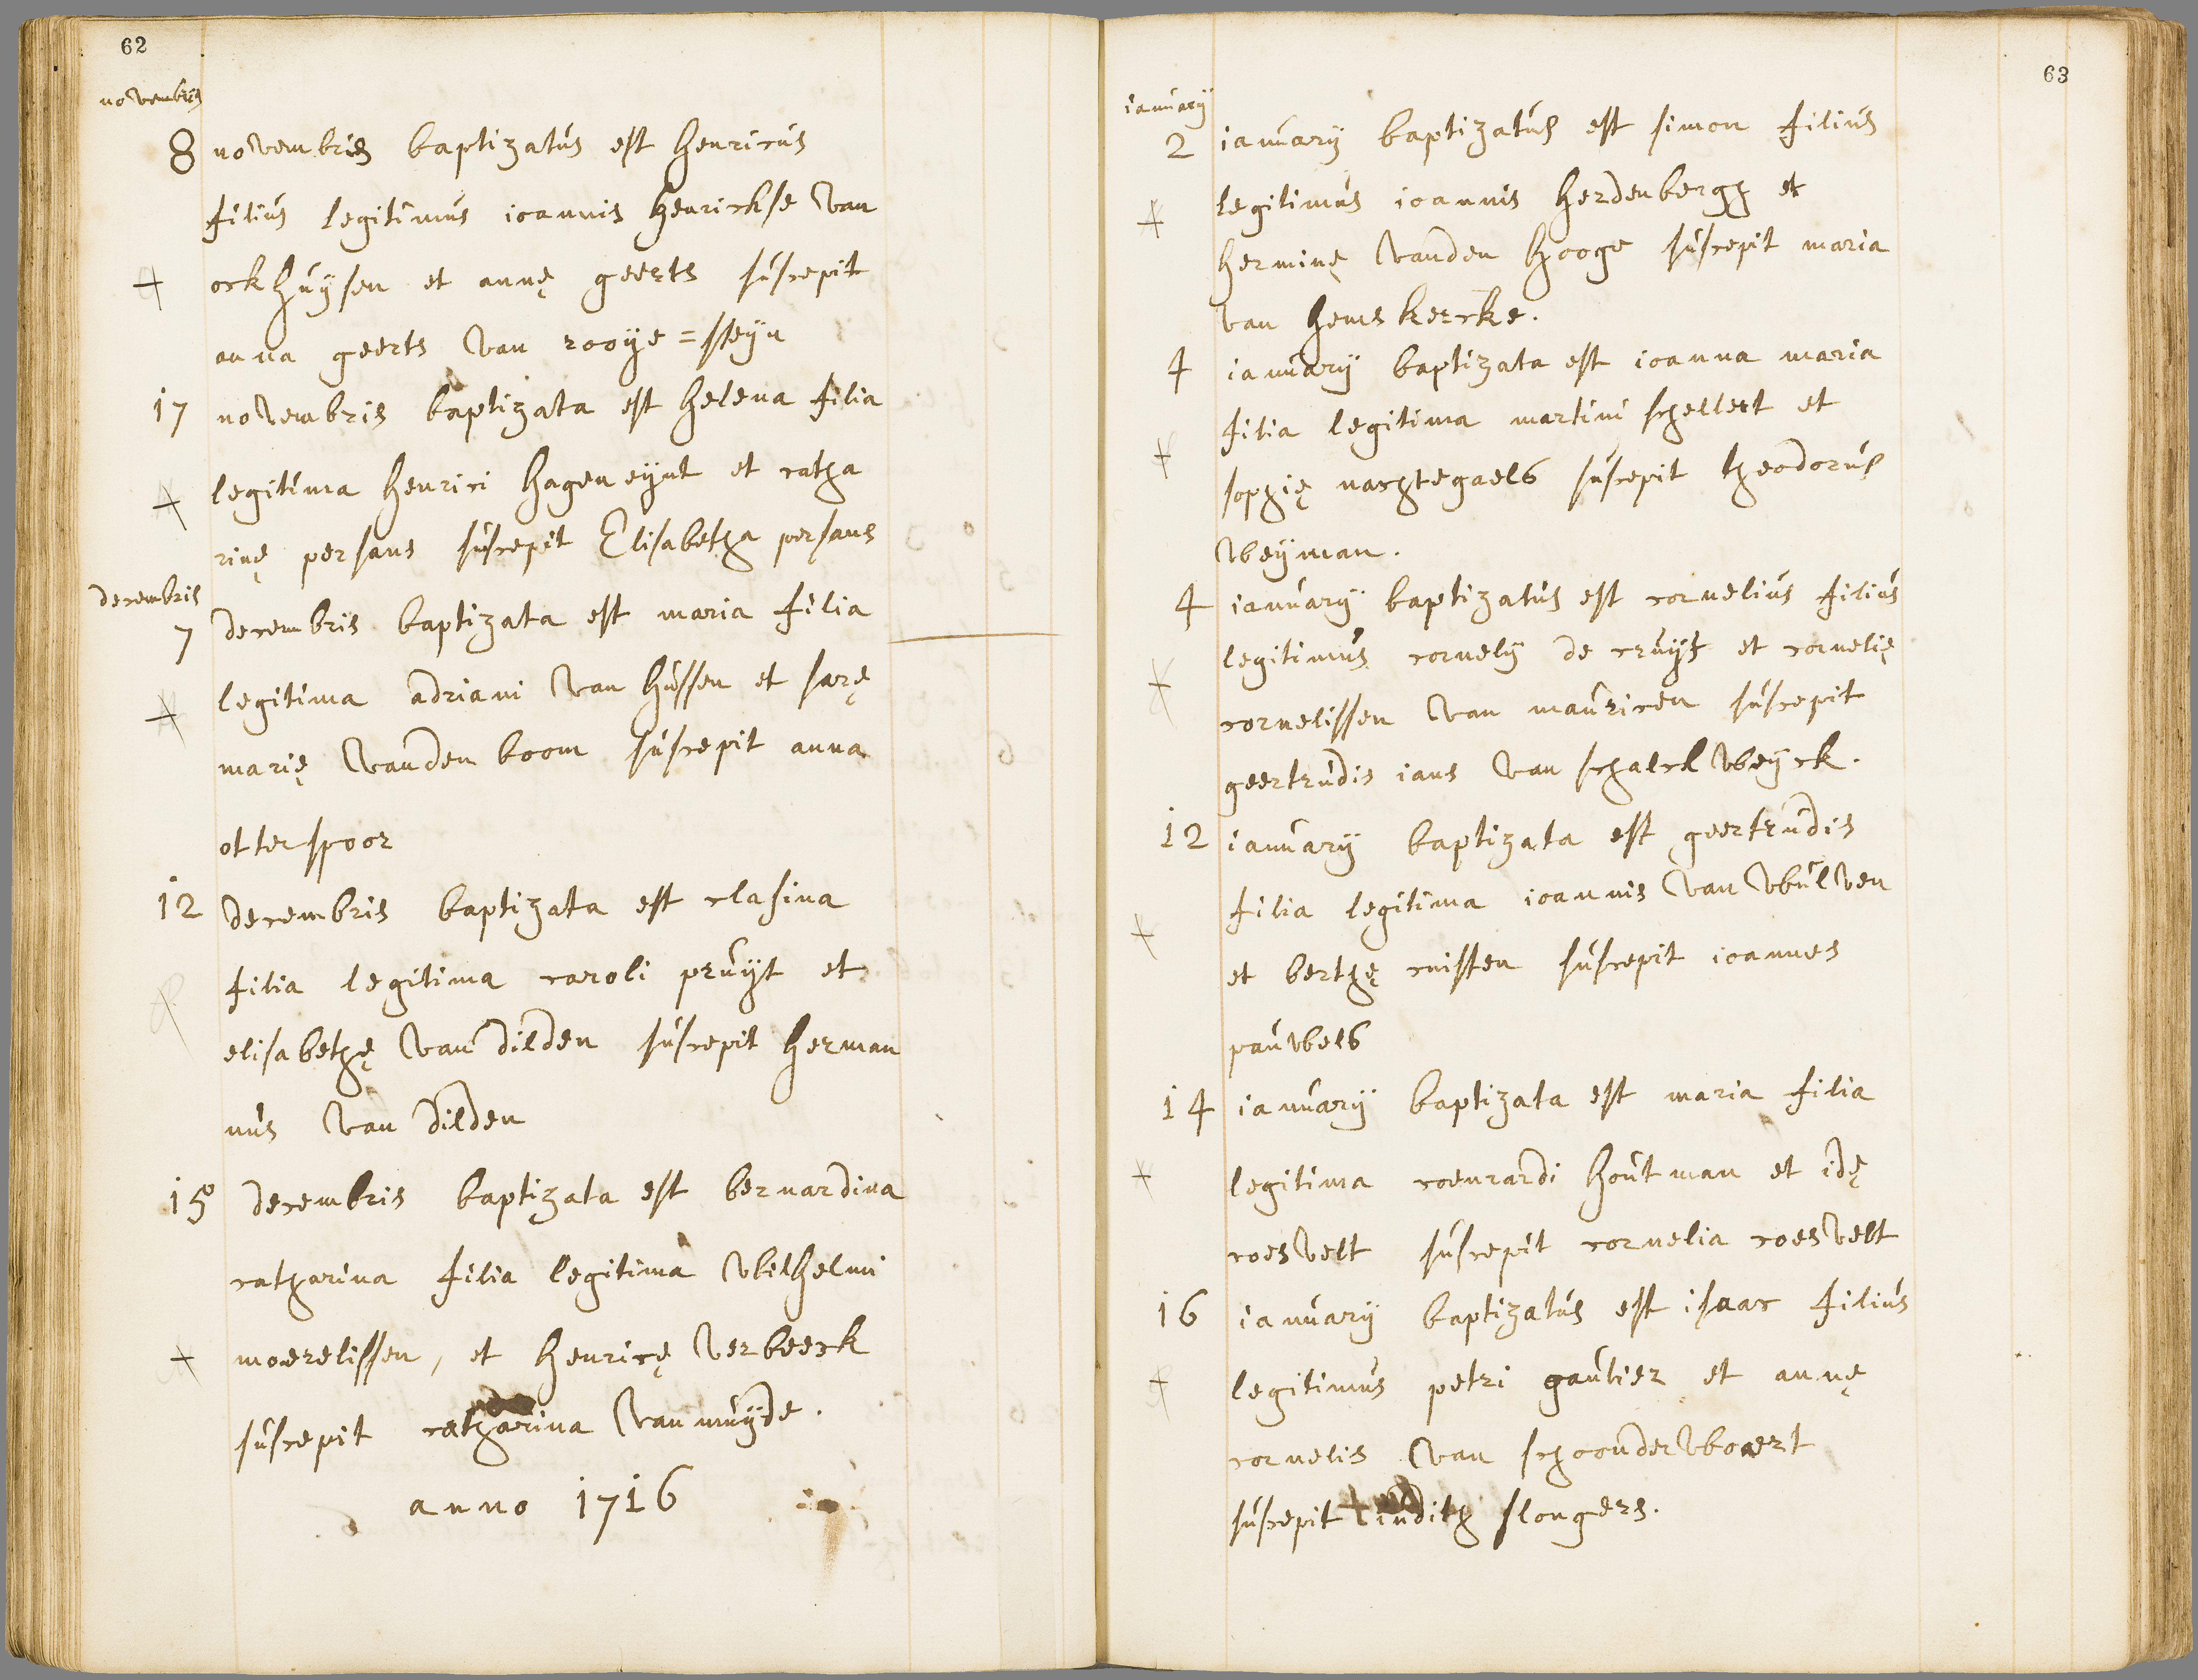 62
novembris
8 novembris baptizatus est henricus
filius legitimus ioannis henrickse van
ockhuÿsen et annę geerts suscepit
anna geerts van rooÿe=steÿn
17 novembris baptizata est helena filia
legitima henrici hageneÿnt et catha
rinę persans suscepit Elisabetha persans
decembris
7 decembris baptizata est maria filia
legitima adriani van hussen et sarę
marię vanden boom suscepit anna
otterspoor
12 decembris baptizata est clasina
filia legitima caroli pruÿt et
elisabethę van dilden suscepit herman
nus van dilden
15 decembris baptizata est bernardina
catharina filia legitima wilhelmi
moerelissen, et henricę verbeeck
suscepit catharina van muÿde.
anno 1716
63
ianuarÿ
2 ianuarÿ baptizatus est simon filius
legitimus ioannis herdenbergh et
herminę vanden hooge suscepit maria
van hemskercke.
4 ianuarÿ baptizata est ioanna maria
filia legitima martini schellert et
sophię nachtegaels suscepit theodorus
weÿman.
4 ianuarÿ baptizatus est cornelius filius
legitimus cornelÿ de cruÿf et cornelię
cornelissen van mauricen suscepit
geertrudis ians van schalckweÿck.
12 ianuarÿ baptizata est geertrudis
filia legitima ioannis van wulven
et berthę cnisten suscepit ioannes
pauwels
14 ianuarÿ baptizata est maria filia
legitima coenrardi houtman et idę
roesvelt suscepit cornelia roesvelt
16 ianuarÿ baptizatus est isaac filius
legitimus petri gautier et annę
cornelis van schoonderwoert
suscepit iudith slongers.